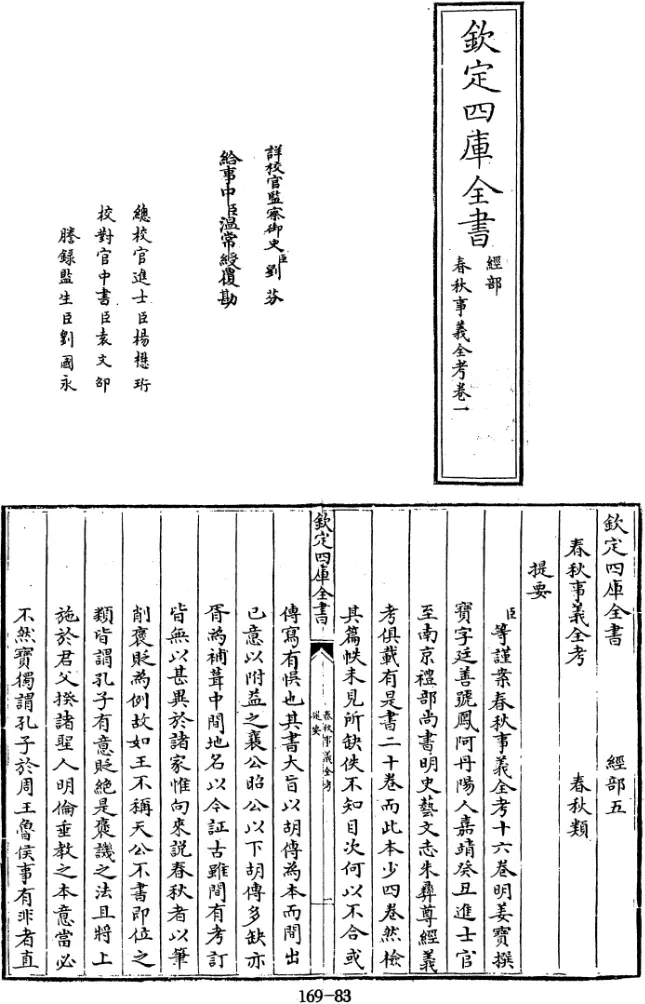 欽定四庫全書
經部
春秋事義全考卷一
詳校官監察御史臣劉芬
給事中臣溫常綬覆勘
總校官進士臣楊懋珩
校對官中書臣袁文邵
謄錄監生臣劉國永
欽定四庫全書
經部五
春秋事義全考
春秋類
提要
臣等謹案春秋事義全考十六卷明姜寶撰
寶字廷善號鳳阿丹陽人嘉靖癸丑進士官
至南京禮部尚書明史藝文志朱彝尊經義
考俱載有是書二十卷而此本少四卷然檢
其篇帙未見所缺佚不知目次何以不合或
欽定四庫全書
春秋事義全考
提要
一
傳寫有悞也其書大旨以胡傳為本而間出
已意以附益之襄公昭公以下胡傳多缺亦
胥為補葺中間地名以今証古雖間有考訂
皆無以甚異於諸家惟向來説春秋者以筆
削褒貶為例故如王不稱天公不書即位之
類皆謂孔子有意貶絶是褒譏之法且將上
施於君父揆諸聖人明倫垂教之本意當必
不然寶獨謂孔子於周王魯侯事有非者直
169-83